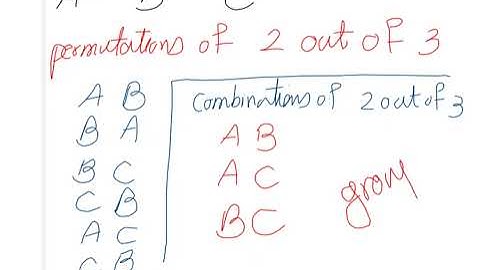 permutations of 2 out of 3
A B
B A
B C
C B
A C
C B
combinations of 2 out of 3
A B
A C
B C